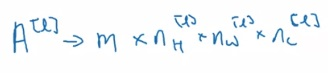 A^[l] → m × n_H^[l] × n_W^[l] × n_C^[l]